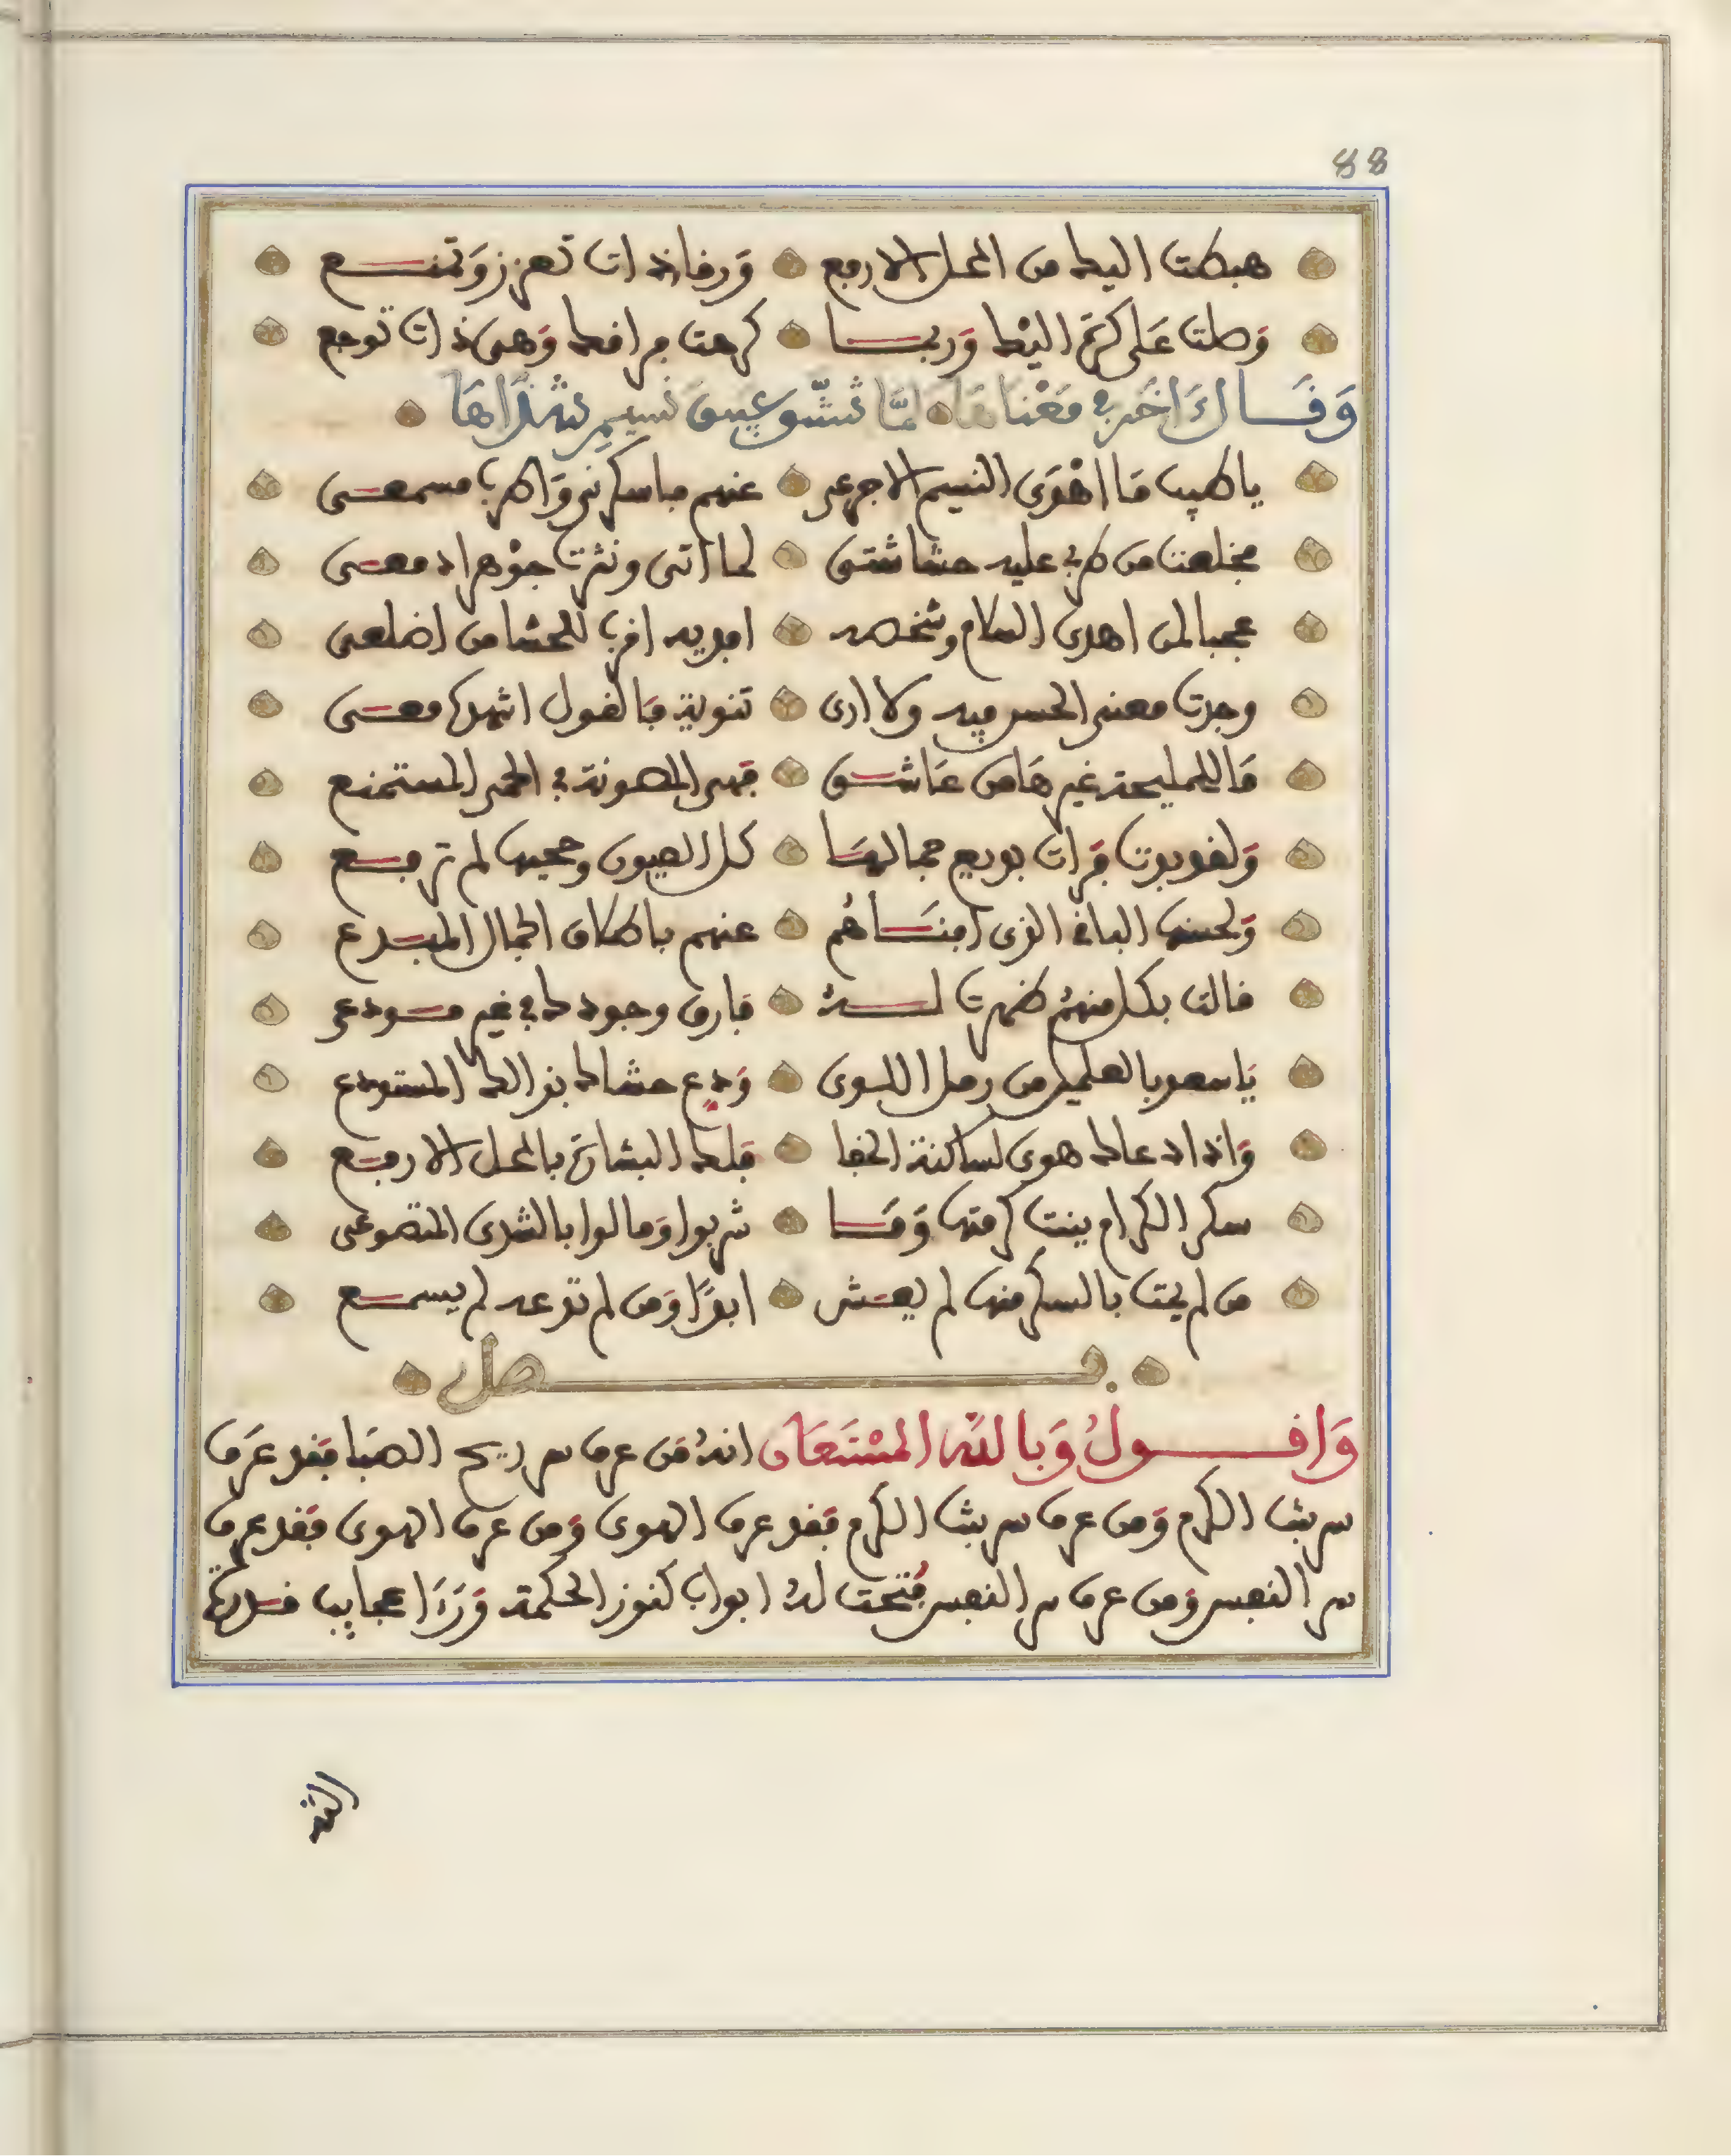 88
هبطت اليك من المحل الارفع ورقاء ذات تعزز وتمنع
وصلت على كره اليك وربما كرهت فراقك وهي ذات توجع
وقال اخر في معناها لما تنشق عبيق نسيم شذاها
يا طيب ما اهدى النسيم الاجرعي عنهم فاسكرني واطرب مسمعي
فخلعت من طرب عليه حشاشتي لما اتى ونثرت جوهر ادمعي
عجبا لمن اهدى السلام وشخصه افديه اقرب للحشا من اضلعي
وجدت معنى الحسن فيه ولا ارى ثنوية فالقول اشرك معي
ما للمليحة غيرها من عاشق فهي المصونة في الحمى المستمنع
ولقد بدت فرات بديع جمالها كل العيون وحجبها لم ترفع
ولحسنها الباقي الذي افناهم عنهم باطلاق الجمال المبدع
قالت بكل منهم ظهرت له فارق وجودك في غير مودعي
يا سعد بالعلمين من رمل اللوى ودع حشاك بذالك المستودع
واذا دعاك هوى لساكنة الخفا فلك البشارة بالمحل الارفع
سكر الكرام بينت كرمتها وما شربوا ومالوا بالشدى المتضوعي
من لم يمت بالسكر منها لم يعش ابدا ومن لم تدعه لم يسمع
فصل
واقول وبالله المستعان انه من عرف سر ريح الصبا فقد عرف
سر بنت الكرم ومن عرف سر بنت الكرم فقد عرف الهوى ومن عرف الهوى فقد عرف
سر النفس ومن عرف سر النفس فتحت له ابواب كنوز الحكمة وراا عجايب قدرة